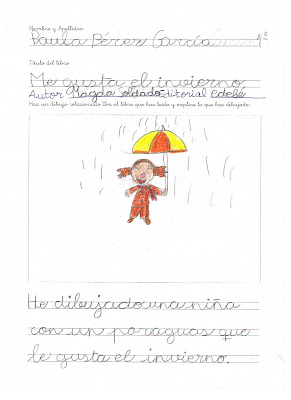 Nombre y Apellidos:
Paula Pérez García 1º
Título del libro:
Me gusta el invierno
Autor Magda Editorial edebé
Haz un dibujo relacionado con el libro que has leído y explica lo que has dibujado.
He dibujado una niña
con un paraguas que
le gusta el invierno.